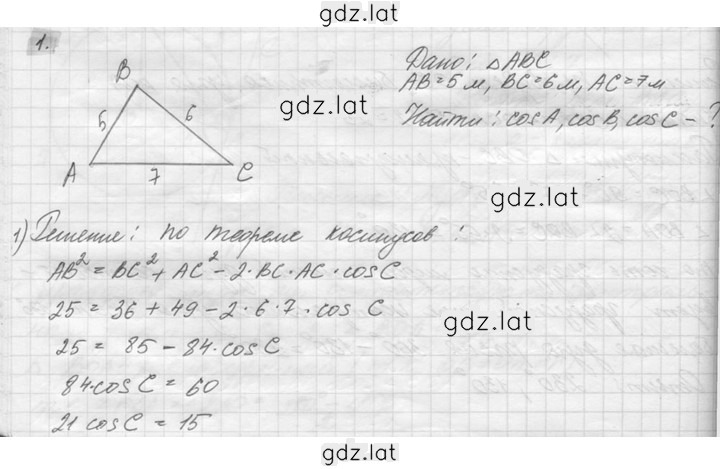 gdz.lat
1.
B
5
6
A
7
C
Дано: △ABC
AB=5м, BC=6м, AC=7м
Найти: cosA, cosB, cosC - ?
gdz.lat
gdz.lat
1) Решение: по теореме косинусов:
AB² = BC² + AC² - 2·BC·AC·cosC
25 = 36 + 49 - 2·6·7·cos C
gdz.lat
25 = 85 - 84·cosC
84·cosC = 60
21 cosC = 15
gdz.lat